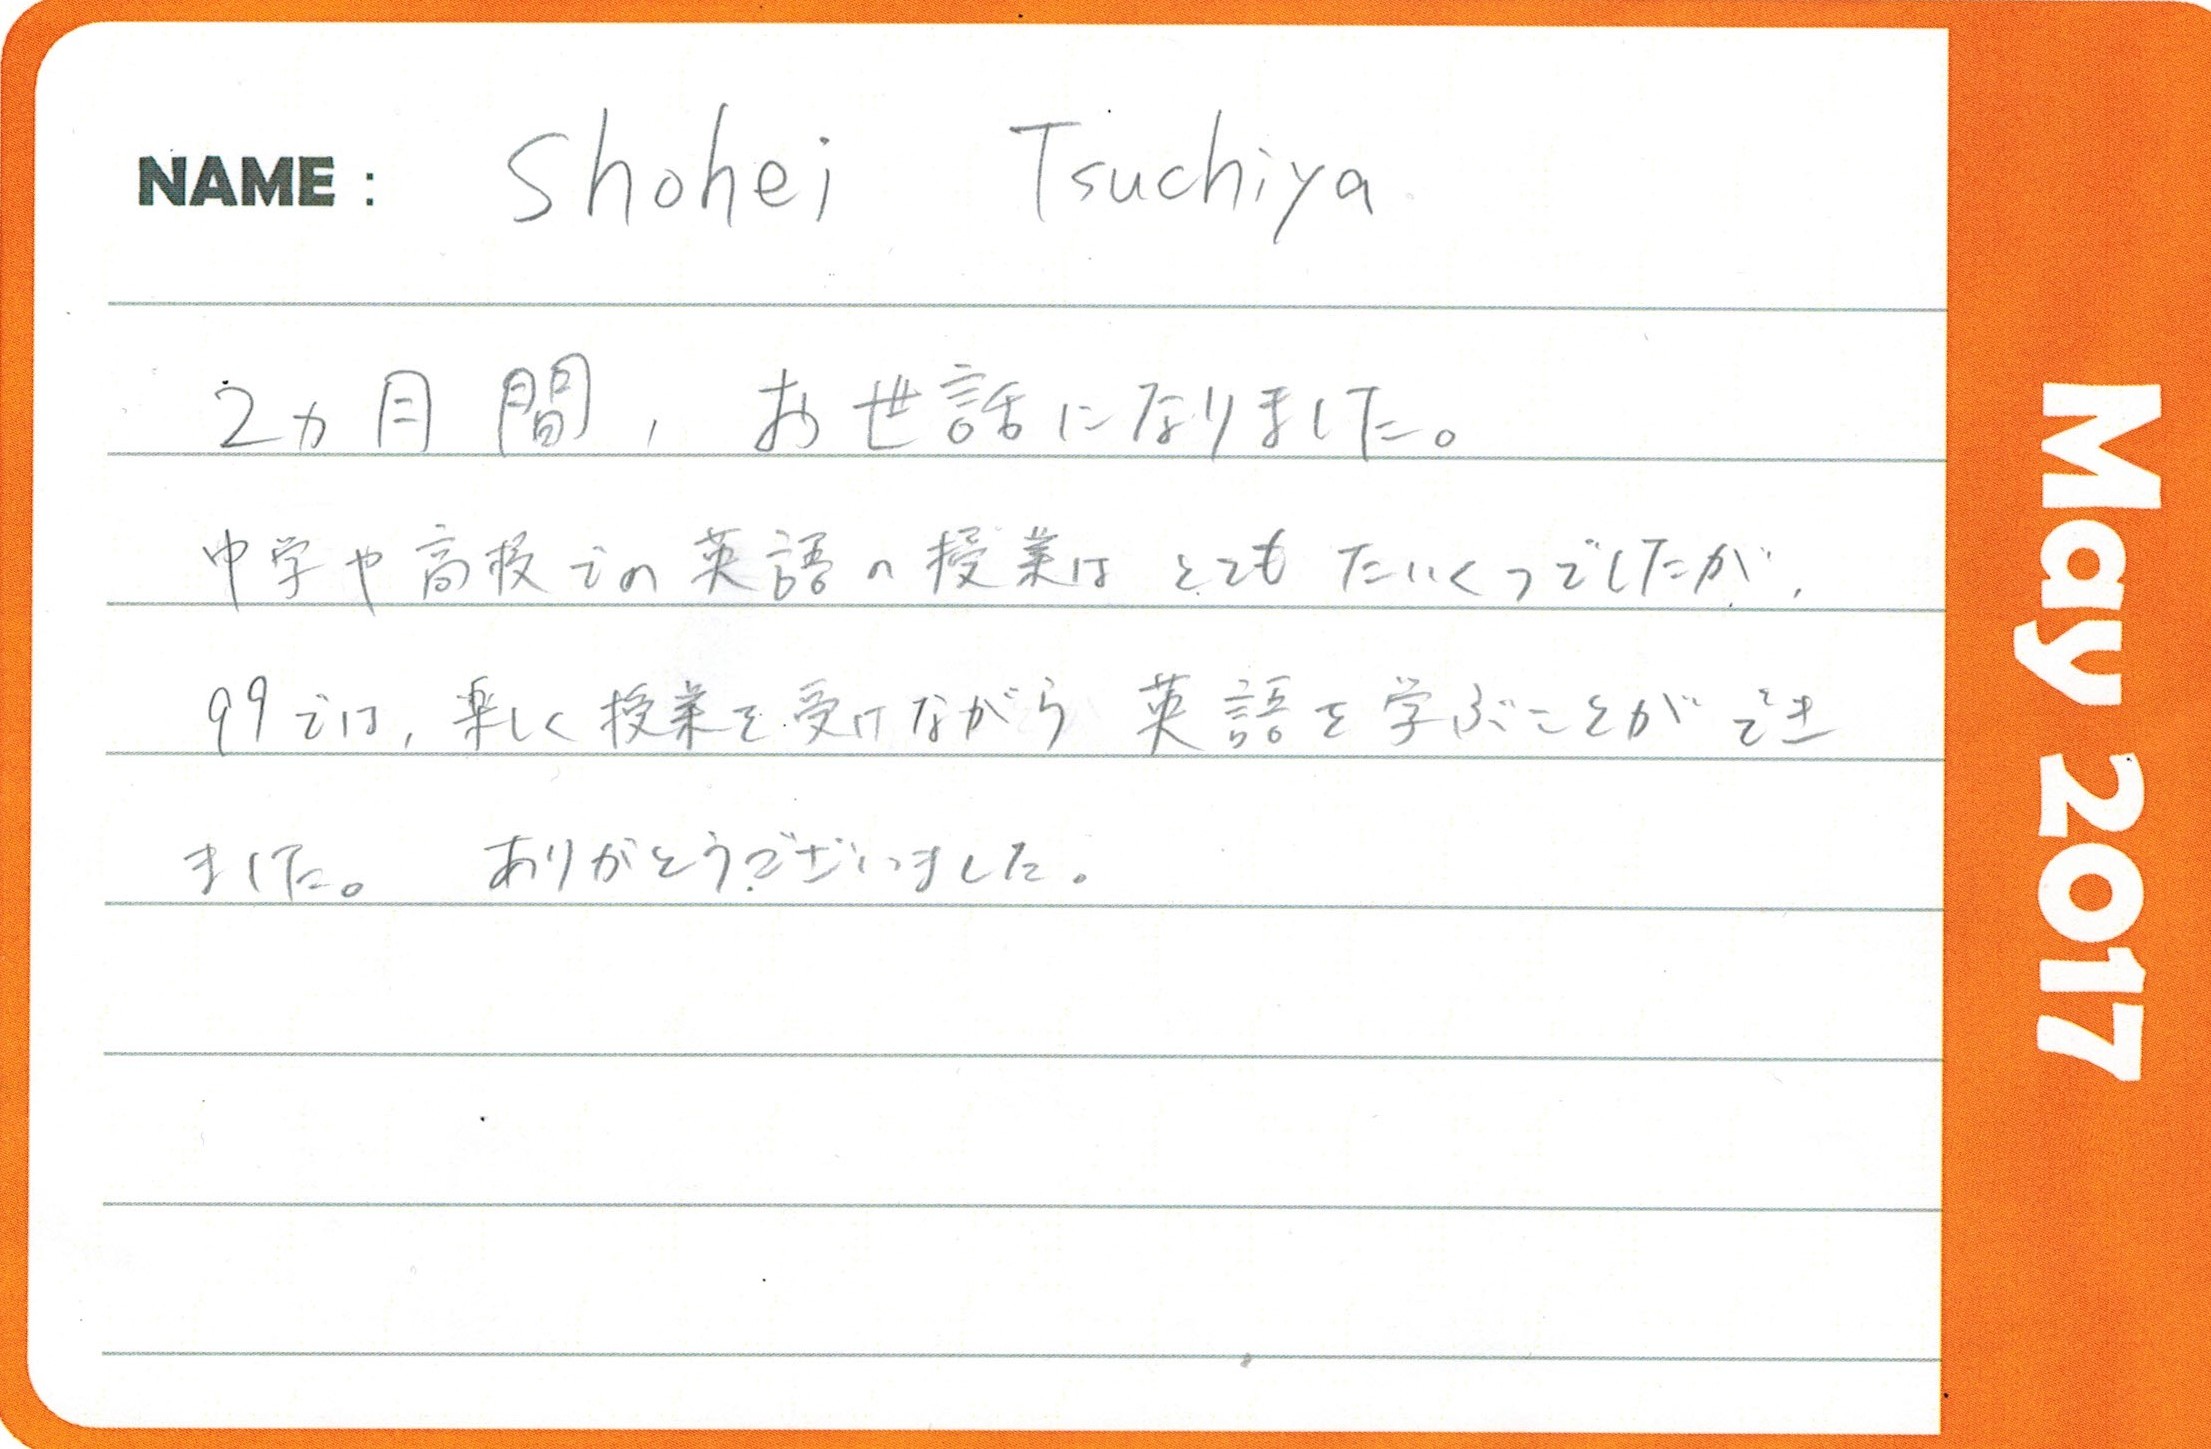 NAME : Shohei Tsuchiya
2ヵ月間, お世話になりました。
中学や高校での英語の授業は とても たいくつでしたが,
99では, 楽しく授業を受けながら 英語を学ぶことができ
ました。 ありがとうございました。
May 2017